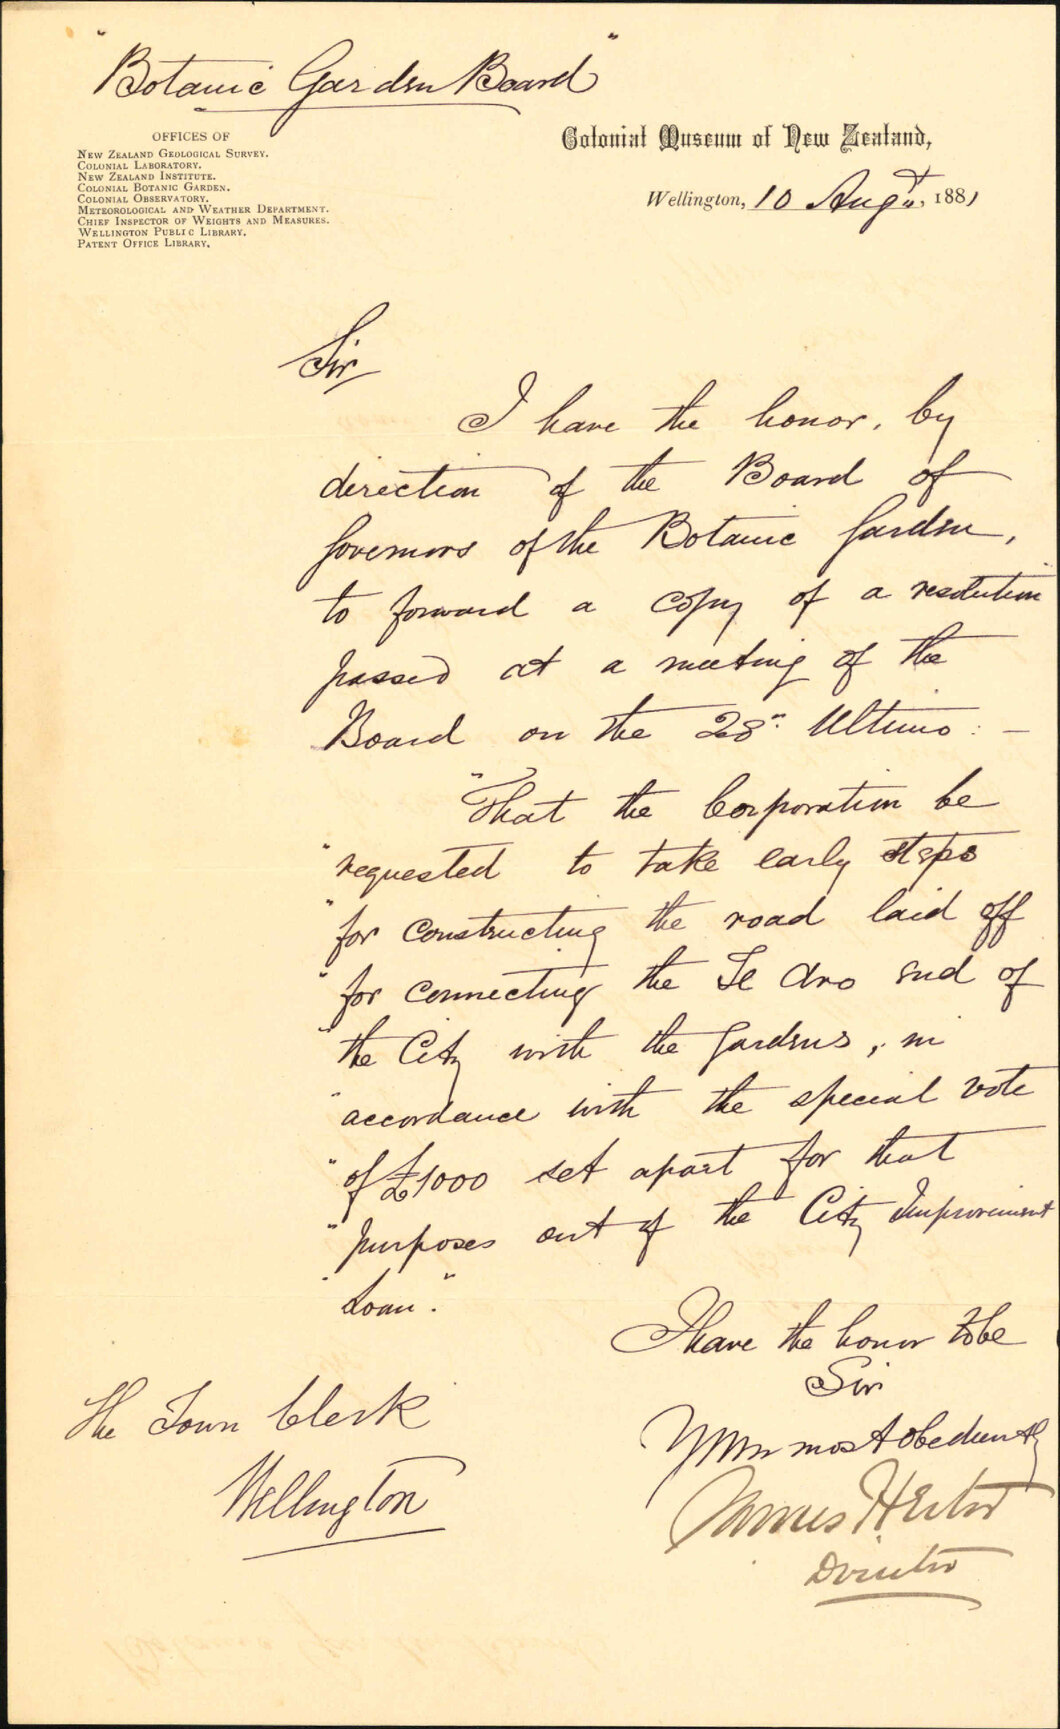 "Botanic Garden Board"
OFFICES OF
NEW ZEALAND GEOLOGICAL SURVEY.
COLONIAL LABORATORY.
NEW ZEALAND INSTITUTE.
COLONIAL BOTANIC GARDEN.
COLONIAL OBSERVATORY.
METEOROLOGICAL AND WEATHER DEPARTMENT.
CHIEF INSPECTOR OF WEIGHTS AND MEASURES.
WELLINGTON PUBLIC LIBRARY.
PATENT OFFICE LIBRARY.
Colonial Museum of New Zealand,
Wellington, 10 Augt, 1881
Sir
I have the honor, by
direction of the Board of
Governors of the Botanic Garden,
to forward a copy of a resolution
passed at a meeting of the
Board on the 28" Ultimo: —
"That the Corporation be
"requested to take early steps
"for constructing the road laid off
"for connecting the Te Aro end of
"the City with the Gardens, in
"accordance with the special vote
"of £1000 set apart for that
"purposes out of the City Improvement
"Loan."
I have the honor to be
Sir
Your most obediently
James Hector
Director
The Town Clerk
Wellington